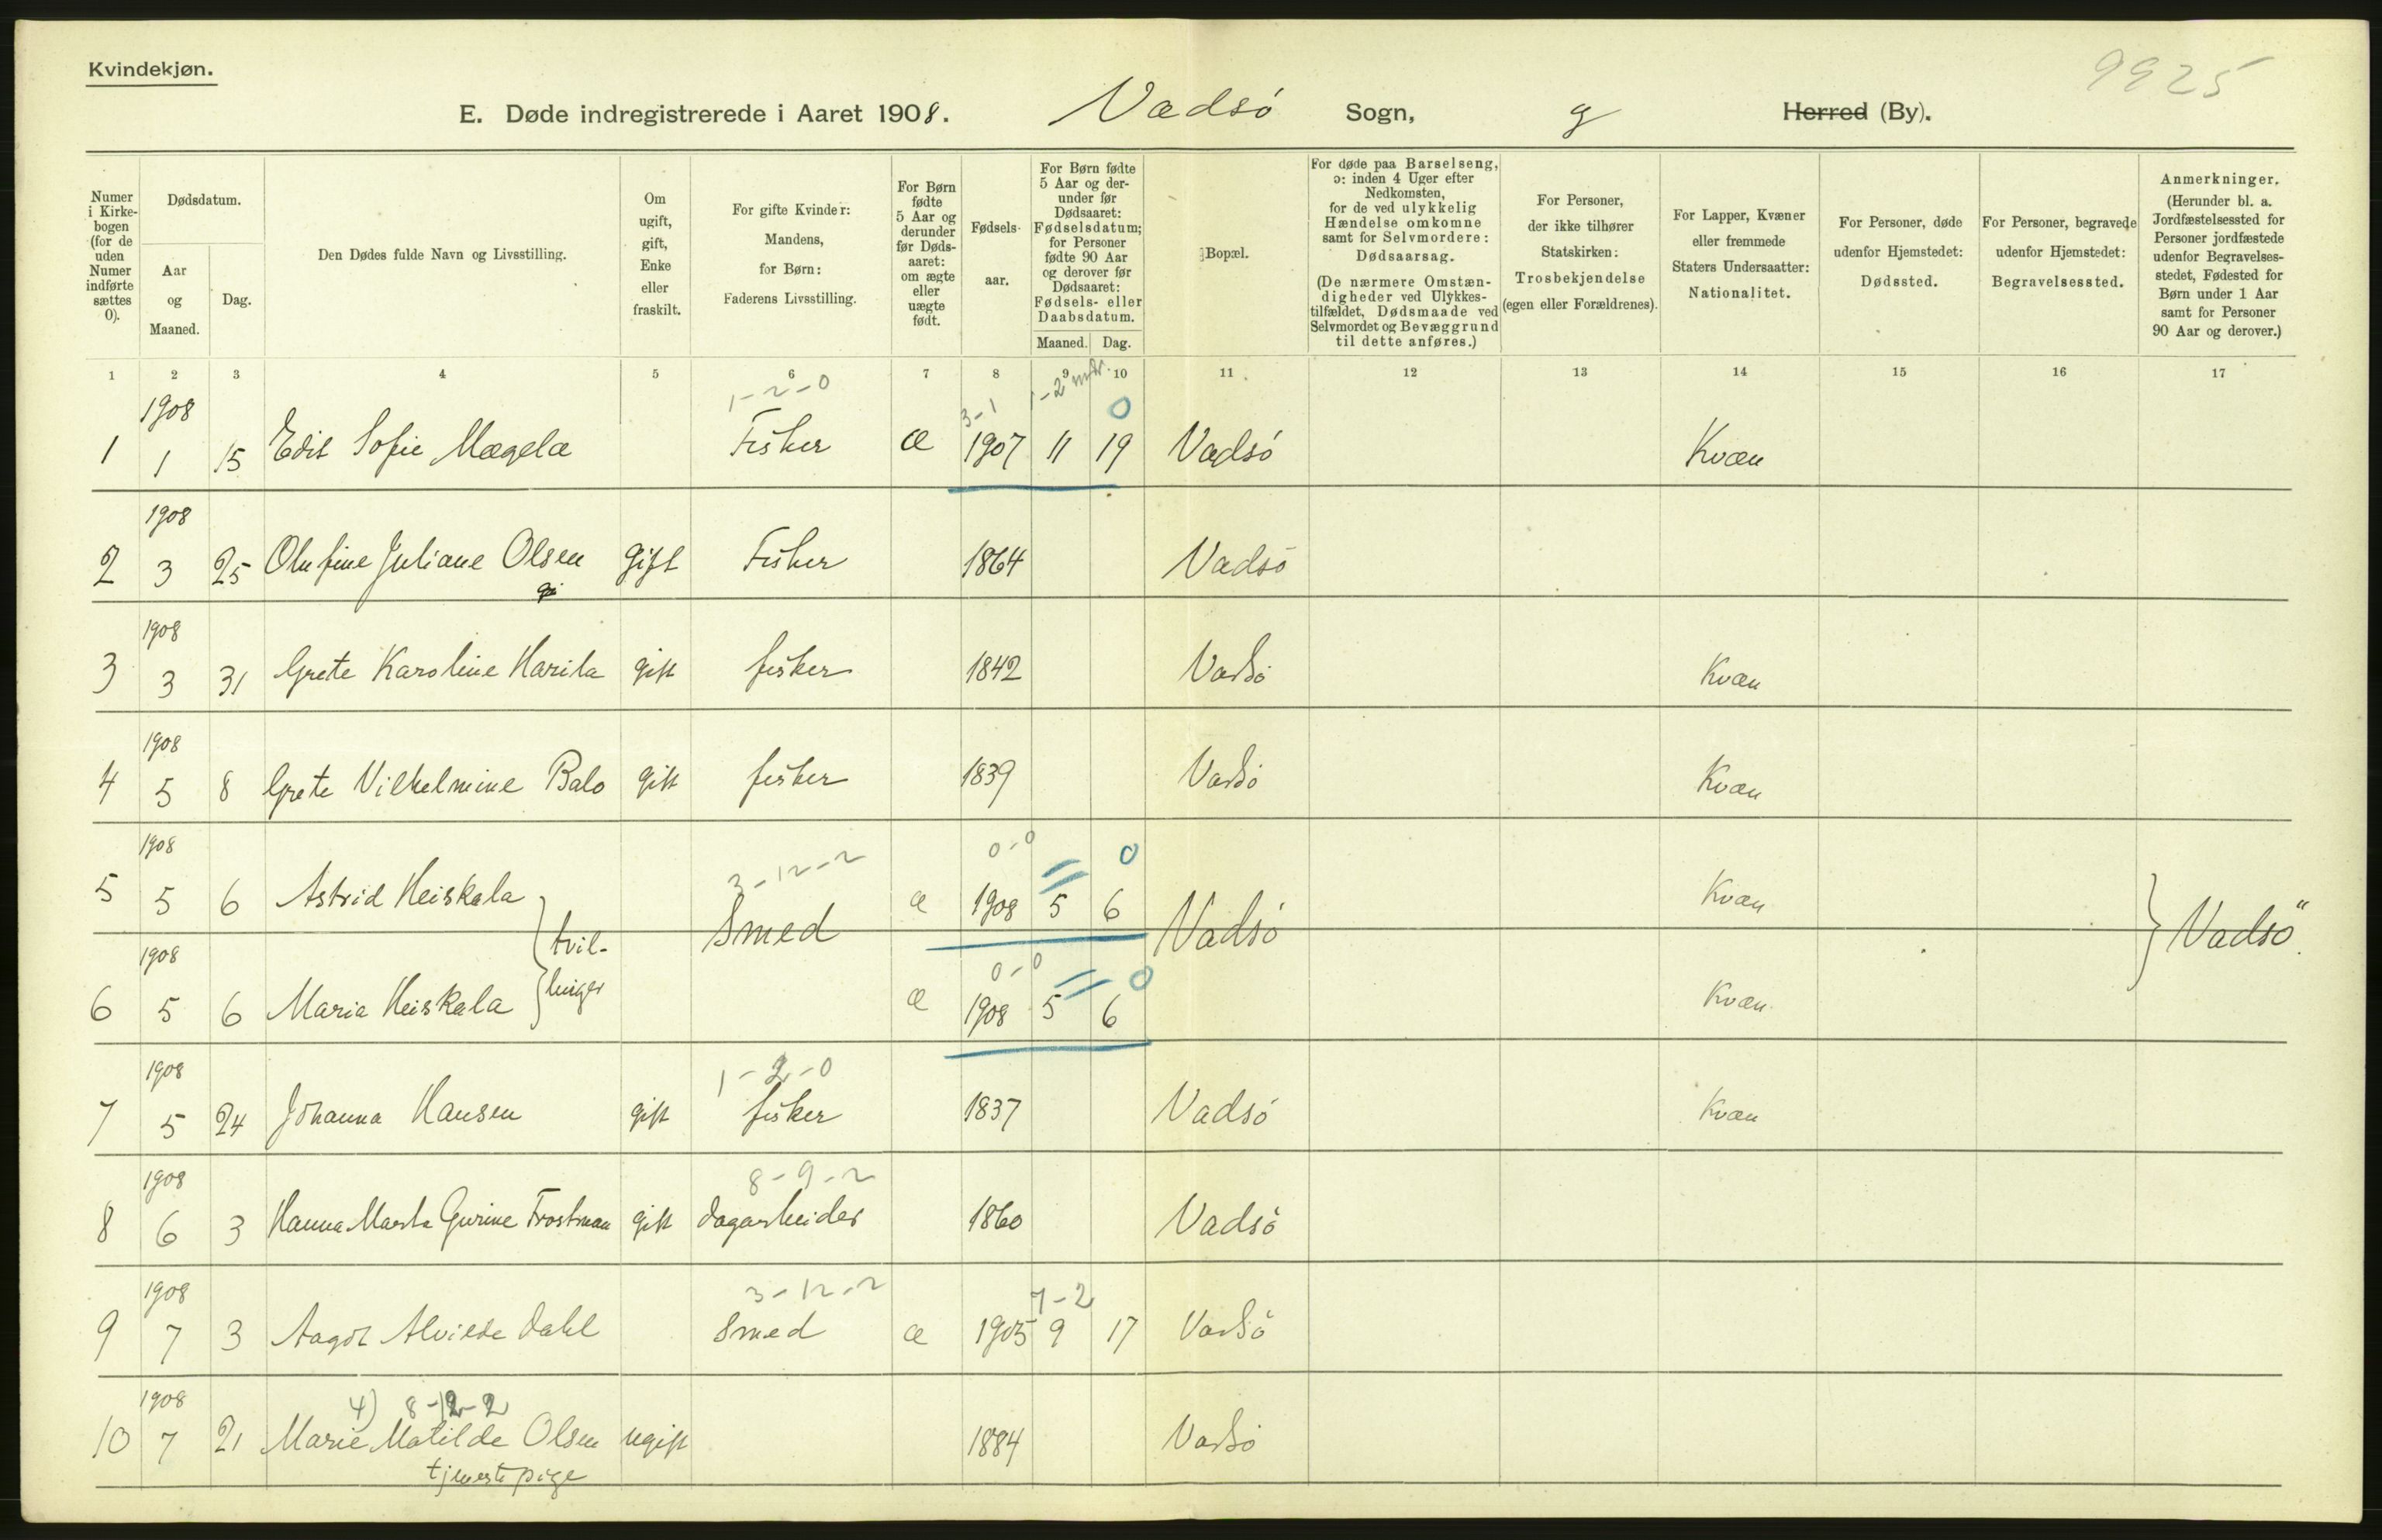 Kvindekjøn.
9925
E. Døde indregistrerede i Aaret 1908. Vadsö Sogn, g Herred (By).
Numer i Kirkebogen (for de uden Numer indførte sættes 0).
Dødsdatum.
Aar og Maaned.
Dag.
Den Dødes fulde Navn og Livsstilling.
Om ugift, gift, Enke eller fraskilt.
For gifte Kvinder: Mandens, for Børn: Faderens Livsstilling.
For Børn fødte 5 Aar og derunder før Dødsaaret: om ægte eller uægte født.
Fødselsaar.
For Børn fødte 5 Aar og derunder før Dødsaaret: Fødselsdatum; for Personer fødte 90 Aar og derover før Dødsaaret: Fødsels- eller Daabsdatum.
Maaned. Dag.
Bopæl.
For døde paa Barselseng, ɔ: inden 4 Uger efter Nedkomsten, for de ved ulykkelig Hændelse omkomne samt for Selvmordere: Dødsaarsag.
(De nærmere Omstændigheder ved Ulykkestilfældet, Dødsmaade ved Selvmordet og Bevæggrund til dette anføres.)
For Personer, der ikke tilhører Statskirken: Trosbekjendelse (egen eller Forældrenes).
For Lapper, Kvæner eller fremmede Staters Undersaatter: Nationalitet.
For Personer, døde udenfor Hjemstedet: Dødssted.
For Personer, begravede udenfor Hjemstedet: Begravelsessted.
Anmerkninger. (Herunder bl. a. Jordfæstelsessted for Personer jordfæstede udenfor Begravelsesstedet, Fødested for Børn under 1 Aar samt for Personer 90 Aar og derover.)
1 2 3 4 5 6 7 8 9 10 11 12 13 14 15 16 17
1908 1-2-0 3-1 1-2 mdr. 0
1 1 15 Edit Sofie Magela Fisker æ 1907 11 19 Vadsö Kvæn
1908
2 3 25 Olufine Juliane Olsen gift Fisker 1864 Vadsö
1908
3 3 31 Grete Karoline Harila gift fisker 1842 Vadsö Kvæn
1908
4 5 8 Grete Vilhelmine Balo gift fisker 1839 Vadsö Kvæn
1908 3-12-2 0-0 0
5 5 6 Astrid Heiskala Smed æ 1908 5 6 Vadsö Kvæn Vadsö
tvil-
1908 0-0 0
6 5 6 Maria Heiskala linger æ 1908 5 6 Kvæn
1908 1-2-0
7 5 24 Johanna Hansen gift fisker 1837 Vadsö Kvæn
1908 8-9-2
8 6 3 Hanna Marta Gurine Trostman gift dagarbeider 1860 Vadsö
1908 3-12-2 7-2
9 7 3 Aagot Alvilde Dahl Smed æ 1905 9 17 Vadsö
1908 4) 8-12-2
10 7 21 Marie Matilde Olsen ugift 1884 Vadsö
tjenestepige